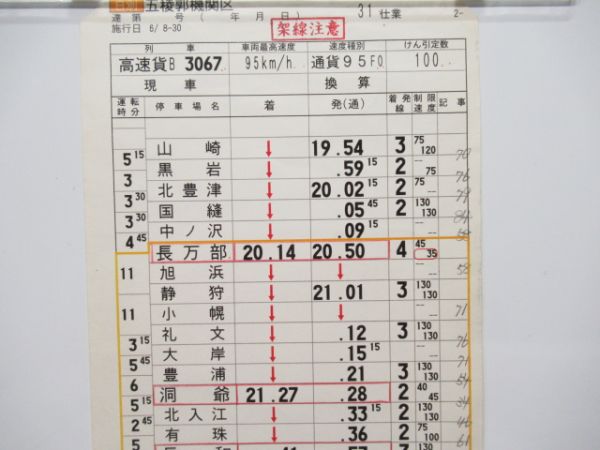 五稜郭機関区
達 第 号 ( 年 月 日) 31 仕業 2-
施行日 6/ 8-30 架線注意
列車 車両最高速度 速度種別 けん引定数
高速貨B 3067 95km/h 通貨95F0 100
現車 換算
運転時分 停車場名 着 発(通) 着発線 制限速度 記事
山崎 ↓ 19.54 3 75 120 70
5 15
黒岩 ↓ .59 15 2 -- 75 76
3
北豊津 ↓ 20.02 15 2 75 -- 79
3 30
国縫 ↓ .05 45 2 130 130 84
3 30
中ノ沢 ↓ .09 15 -- --
4 45
長万部 20.14 20.50 4 45 35
旭浜 ↓ ↓ -- -- 58
11
静狩 ↓ 21.01 3 130 130
小幌 ↓ ↓ -- -- 71
11
礼文 ↓ .12 3 130 130 76
3 15
大岸 ↓ .15 15 -- --
5 45
豊浦 ↓ .21 3 130 130 71
6
洞爺 21.27 .28 2 40 45 54
5 15
北入江 ↓ .33 15 2 130 130 34
2 45
有珠 ↓ .36 2 75 100 46
5
61